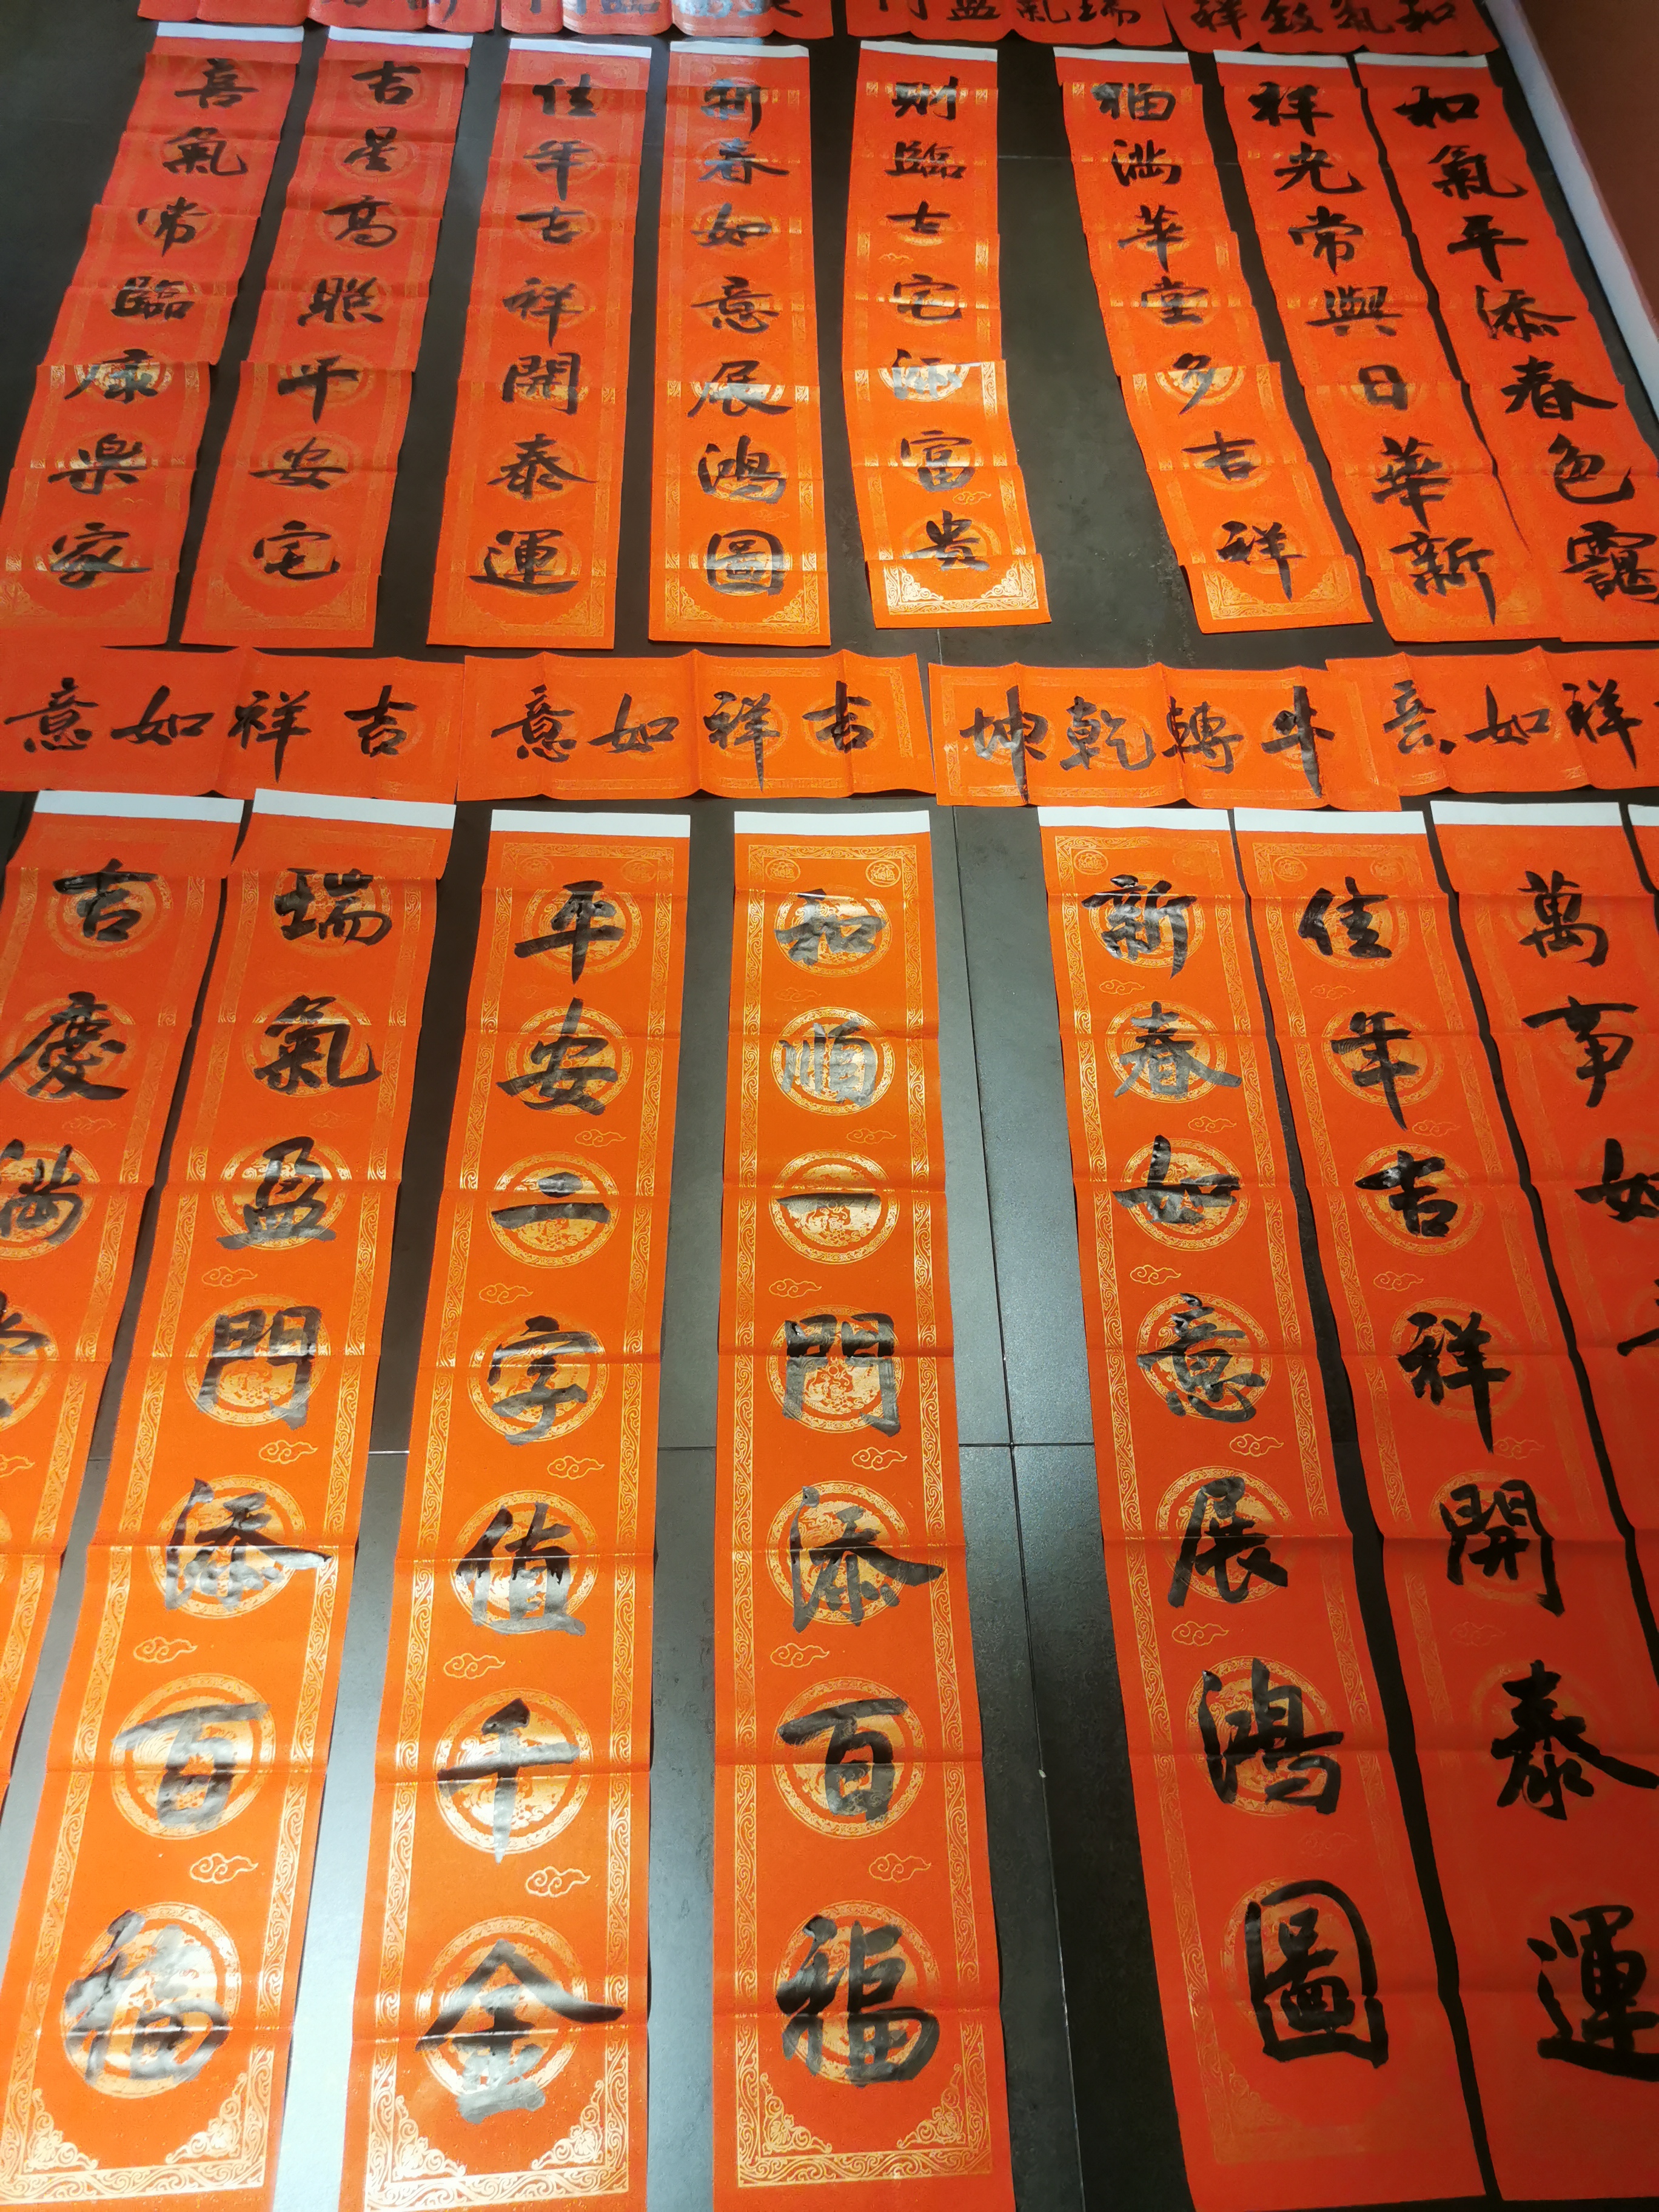 和氣致祥
瑞氣盈門
臨門
和氣平添春色靄
祥光常與日華新
福滿華堂多吉祥
財臨吉宅添富貴
新春如意展鴻圖
佳年吉祥開泰運
吉星高照平安宅
喜氣常臨康樂家
祥如意
牛轉乾坤
吉祥如意
吉祥如意
萬事如
佳年吉祥開泰運
新春如意展鴻圖
和順一門添百福
平安二字值千金
瑞氣盈門添百福
吉慶滿堂